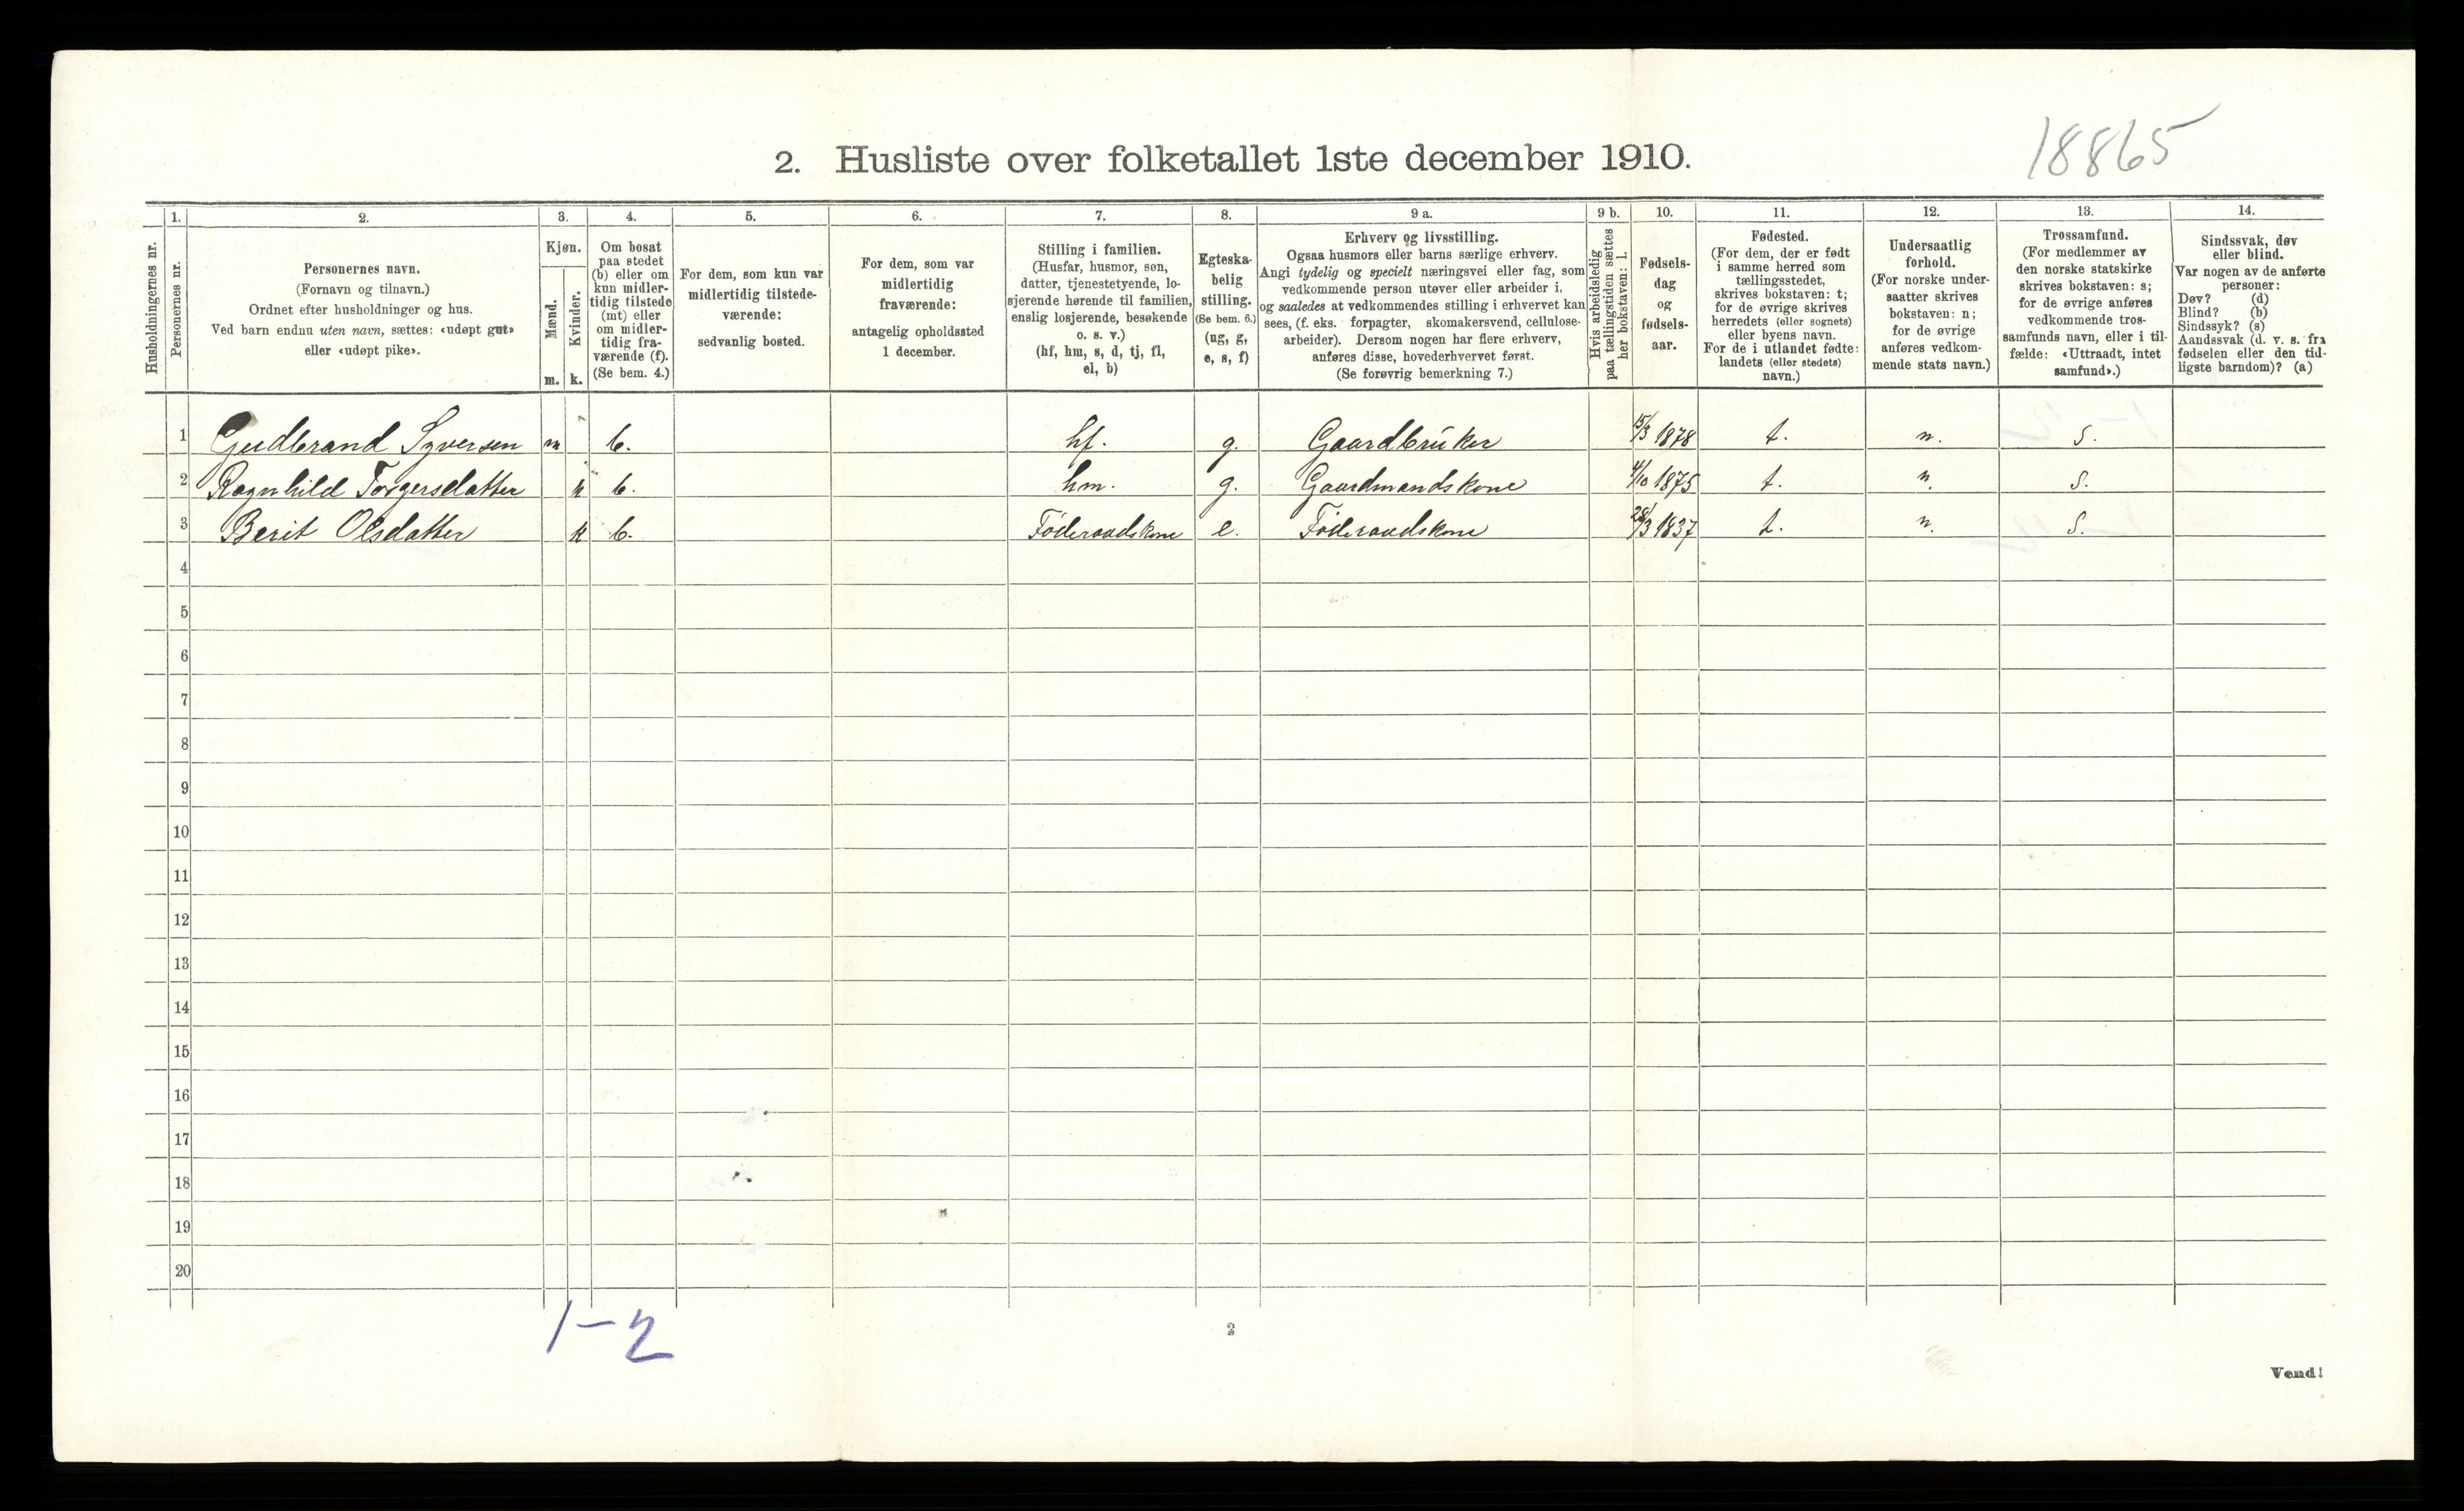 18865
2. Husliste over folketallet 1ste december 1910.
Husholdningernes nr.
1.
Personernes nr.
2.
Personernes navn.
(Fornavn og tilnavn.)
Ordnet efter husholdninger og hus.
Ved barn endnu uten navn, sættes: «udøpt gut»
eller «udøpt pike».
3.
Kjøn.
Mænd.
m.
Kvinder.
k.
4.
Om bosat
paa stedet
(b) eller om
kun midler-
tidig tilstede
(mt) eller
om midler-
tidig fra-
værende (f).
(Se bem. 4.)
5.
For dem, som kun var
midlertidig tilstede-
værende:
sedvanlig bosted.
6.
For dem, som var
midlertidig
fraværende:
antagelig opholdssted
1 december.
7.
Stilling i familien.
(Husfar, husmor, søn,
datter, tjenestetyende, lo-
sjerende hørende til familien,
enslig losjerende, besøkende
o. s. v.)
(hf, hm, s, d, tj, fl,
el, b)
8.
Egteska-
belig
stilling.
(Se bem. 6.)
(ug, g,
e, s, f)
9 a.
Erhverv og livsstilling.
Ogsaa husmors eller barns særlige erhverv.
Angi tydelig og specielt næringsvei eller fag, som
vedkommende person utøver eller arbeider i,
og saaledes at vedkommendes stilling i erhvervet kan
sees, (f. eks. forpagter, skomakersvend, cellulose-
arbeider). Dersom nogen har flere erhverv,
anføres disse, hovederhvervet først.
(Se forøvrig bemerkning 7.)
9 b.
Hvis arbeidsledig
paa tællingstiden sættes
her bokstaven: l.
10.
Fødsels-
dag
og
fødsels-
aar.
11.
Fødested.
(For dem, der er født
i samme herred som
tællingsstedet,
skrives bokstaven: t;
for de øvrige skrives
herredets (eller sognets)
eller byens navn.
For de i utlandet fødte:
landets (eller stedets)
navn.)
12.
Undersaatlig
forhold.
(For norske under-
saatter skrives
bokstaven: n;
for de øvrige
anføres vedkom-
mende stats navn.)
13.
Trossamfund.
(For medlemmer av
den norske statskirke
skrives bokstaven: s;
for de øvrige anføres
vedkommende tros-
samfunds navn, eller i til-
fælde: «Uttraadt, intet
samfund».)
14.
Sindssvak, døv
eller blind.
Var nogen av de anførte
personer:
Døv? (d)
Blind? (b)
Sindssyk? (s)
Aandssvak (d. v. s. fra
fødselen eller den tid-
ligste barndom)? (a)
1 Gudbrand Syversen m b. hf. g. Gaardbruker 15/3 1878 t. n. s.
2 Ragnhild Torgersdatter k b. hm. g. Gaardmandskone 4/10 1875 t. n. s.
3 Berit Olsdatter k b. Føderaadskone e. Føderaadskone 28/3 1837 t. n. s.
4
5
6
7
8
9
10
11
12
13
14
15
16
17
18
19
20
1-2
2
Vend!